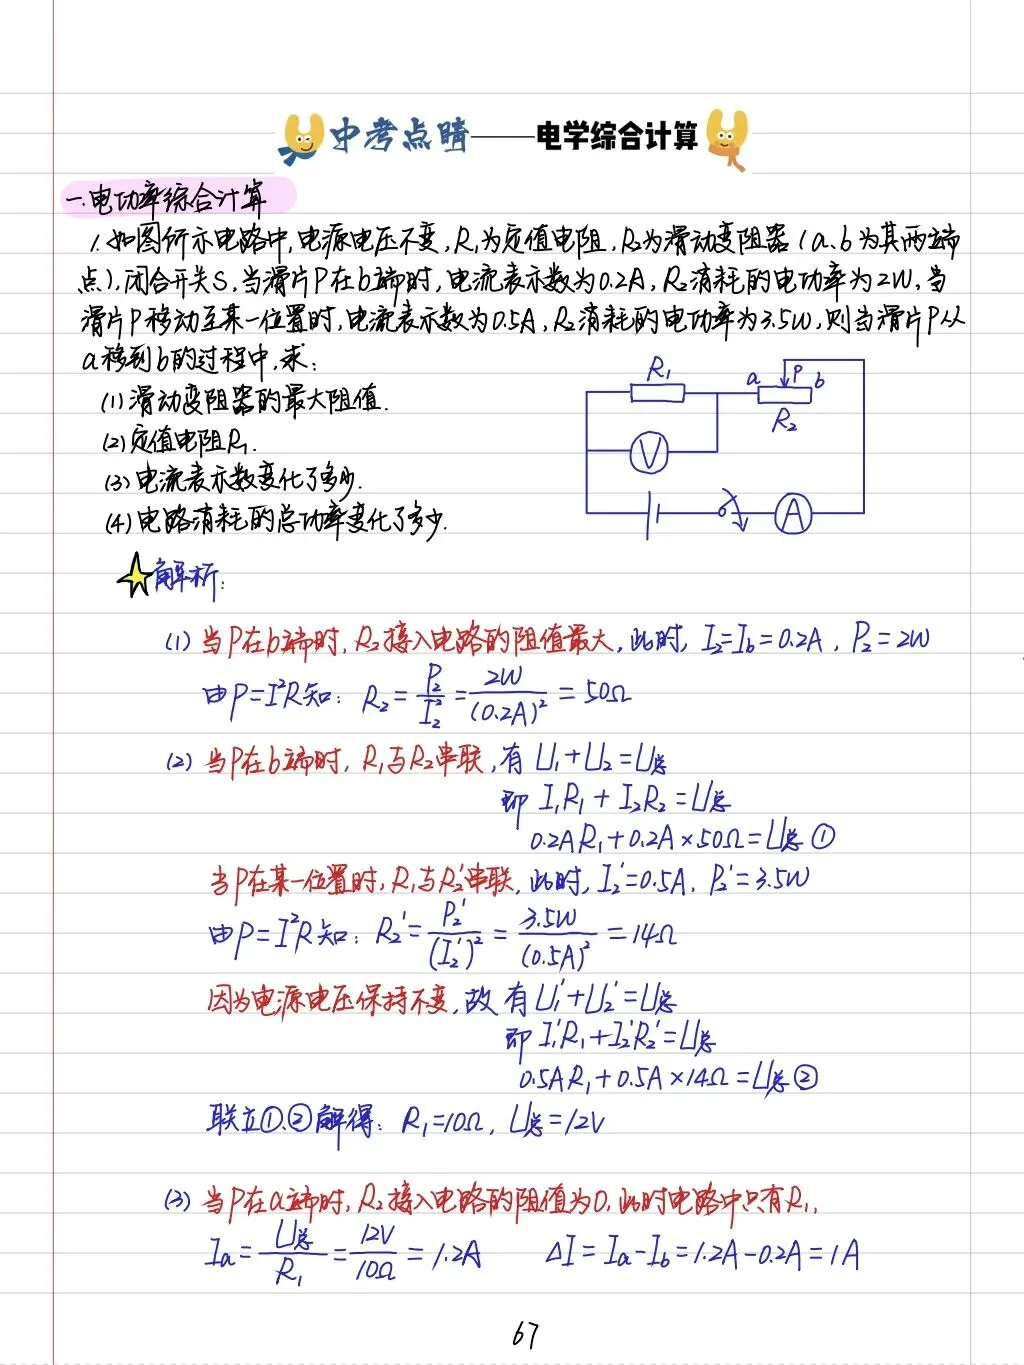 中考点睛——电学综合计算
一.电功率综合计算
1.如图所示电路中,电源电压不变,R₁为定值电阻,R₂为滑动变阻器(a、b为其两端
点),闭合开关S,当滑片P在b端时,电流表示数为0.2A,R₂消耗的电功率为2W,当
滑片P移动至某一位置时,电流表示数为0.5A,R₂消耗的电功率为3.5W,则当滑片P从
a移到b的过程中,求:
(1)滑动变阻器的最大阻值.
(2)定值电阻R₁.
(3)电流表示数变化了多少.
(4)电路消耗的总功率变化了多少.
R₁
a P b
R₂
V
A
解析:
(1) 当P在b端时,R₂接入电路的阻值最大,此时,I₂=I_b=0.2A,P₂=2W
由P=I²R知: R₂=P₂/I₂²=2W/(0.2A)²=50Ω
(2) 当P在b端时,R₁与R₂串联,有 U₁+U₂=U总
即 I₁R₁+I₂R₂=U总
0.2AR₁+0.2A×50Ω=U总 ①
当P在某一位置时,R₁与R₂'串联,此时,I₂'=0.5A,P₂'=3.5W
由P=I²R知: R₂'=P₂'/(I₂')²=3.5W/(0.5A)²=14Ω
因为电源电压保持不变,故有U₁'+U₂'=U总
即 I₁'R₁+I₂'R₂'=U总
0.5AR₁+0.5A×14Ω=U总②
联立①、②解得: R₁=10Ω, U总=12V
(3) 当P在a端时,R₂接入电路的阻值为0,此时电路中只有R₁,
Ia=U总/R₁=12V/10Ω=1.2A ΔI=Ia-I_b=1.2A-0.2A=1A
67